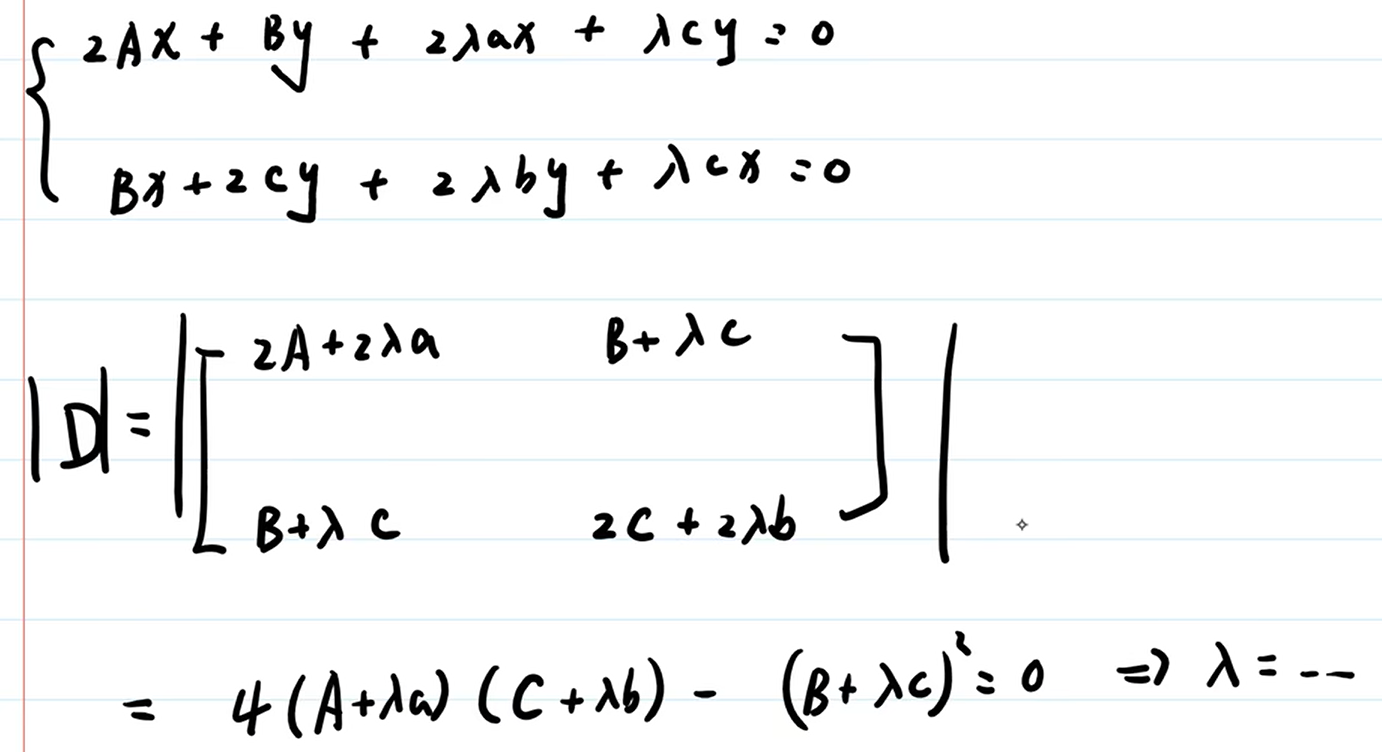 { 2Ax + By + 2λax + λcy = 0
Bx + 2Cy + 2λby + λcx = 0
|D| = |[ 2A+2λa B+λc
B+λc 2C+2λb ]|
= 4(A+λa)(C+λb) - (B+λc)² = 0 ⇒ λ = --